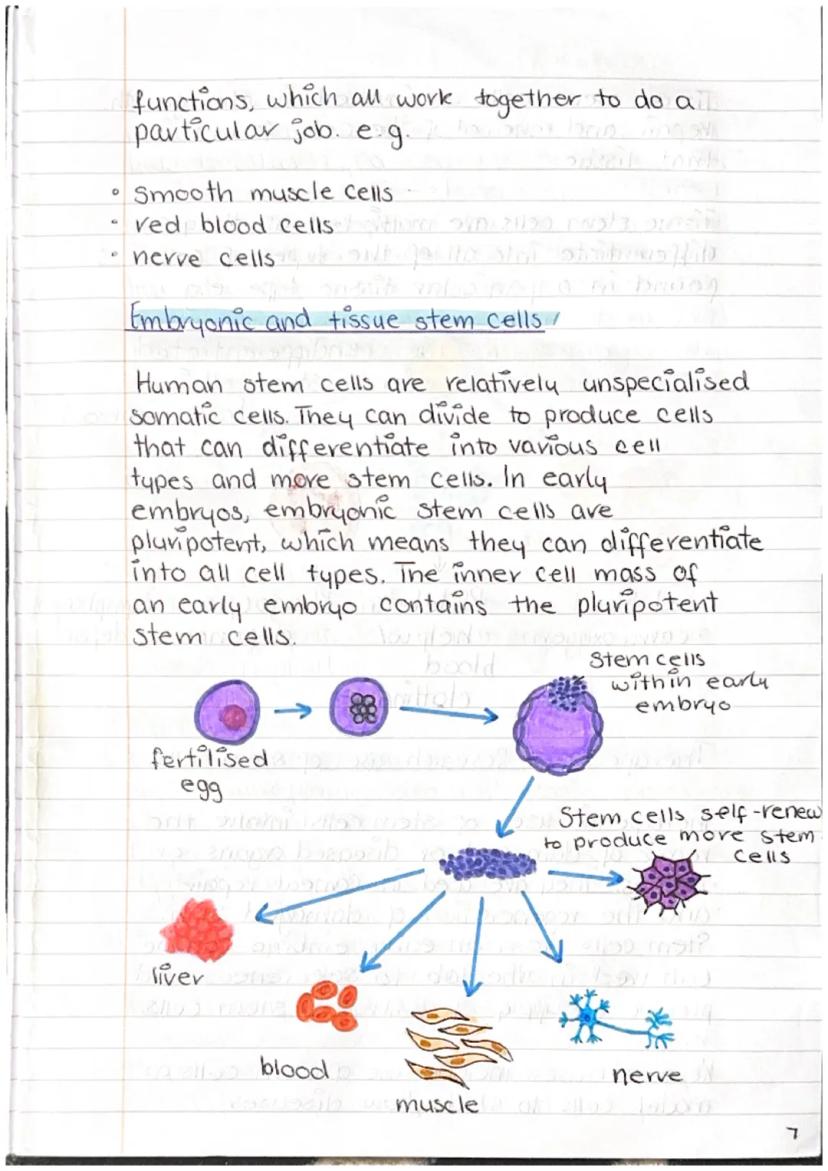 functions, which all work together to do a
particular job. e.g.
• smooth muscle cells
• red blood cells
• nerve cells
Embryonic and tissue stem cells
Human stem cells are relatively unspecialised
somatic cells. They can divide to produce cells
that can differentiate into various cell
types and more stem cells. In early
embryos, embryonic stem cells are
pluripotent, which means they can differentiate
into all cell types. The inner cell mass of
an early embryo contains the pluripotent
stem cells.
Stem cells
within early
embryo
fertilised
egg
Stem cells self-renew
to produce more stem
cells
liver
blood
muscle
nerve
7